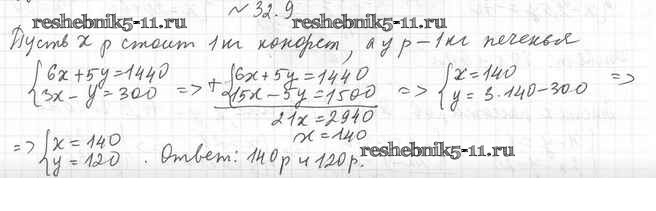 № 32.9
reshebnik5-11.ru reshebnik5-11.ru
Пусть x р стоит 1 кг конфет, а y р – 1 кг печенья
{6x+5y=1440 => +{6x+5y=1440 => {x=140 =>
{3x-y=300 {15x-5y=1500 {y=3·140-300
21x=2940
x=140
=> {x=140
{y=120 . Ответ: 140 р и 120 р.
reshebnik5-11.ru